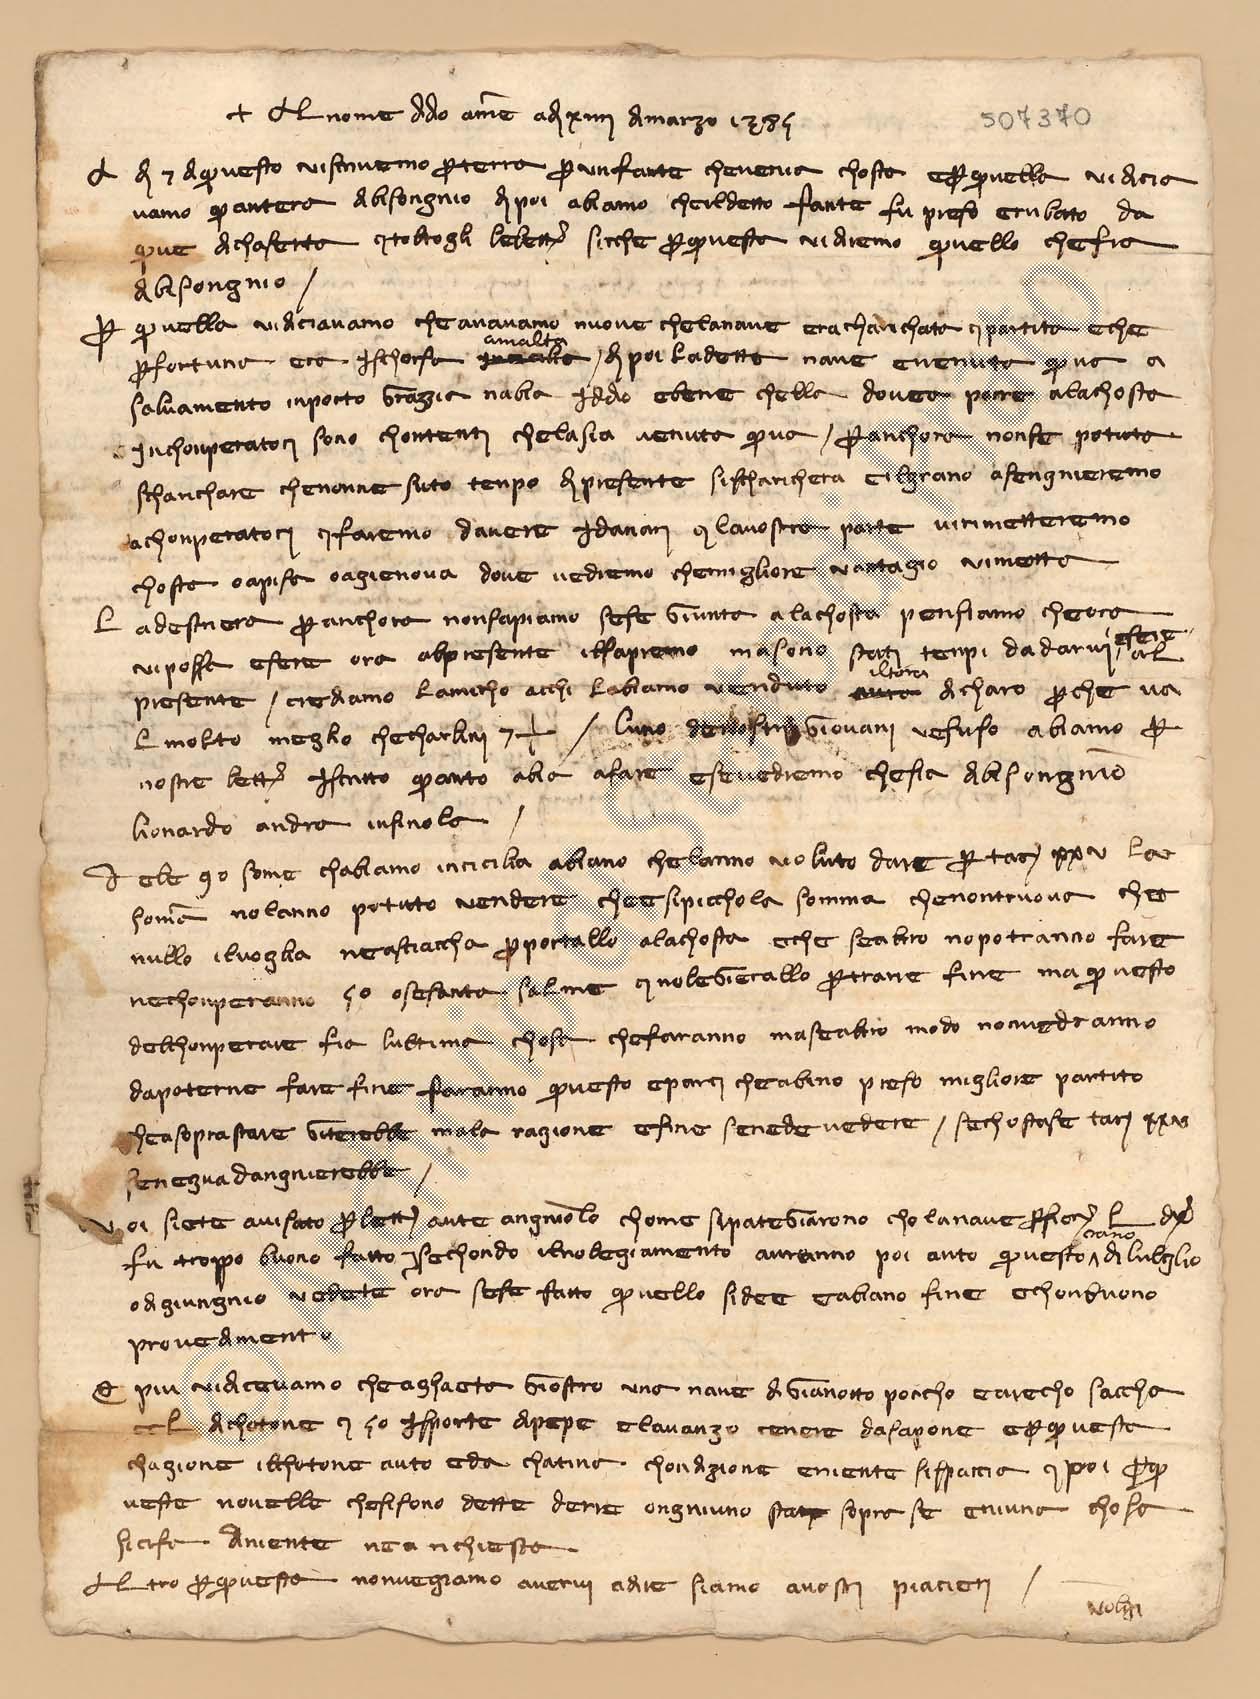 + Al nome di dio ame adi xiiii di marzo 1385
507370
A di 7 di questo vi scrivemo per terra per un fante che venia chosta e per quella vi dicia
vamo quantera di bisongnio di poi abiamo che il detto fante fu preso e rubatto da
que di chaserta e toltogli le lett sicche per questa vi diremo quello che fia
di bisongnio /
Per quella vi diciavamo che avavamo nuove che la nave era charichata e partita e che
per fortuna era ischorsa amalta / di poi la detta nave e venuta qua a
salvamento in porto Grazia nabia iddio e bene chella dovea porre a la chosta
i nchonperatori sono chontenti che la sia venuta qua / per anchora non se potuta
scharichare che non ne suto tenpo di presente si ischarichera e il grano asengnieremo
a chonperatori e faremo davere i danari e la vostra parte vi rimetteremo
chosta o a pisa o a gienova dove vedremo che migliore vantagio vi metta
La destrera per anchora non sapiamo se se Giunta a la chosta pensiamo che ora
vi possa esere ora al presente il sapremo ma sono stati tenpi da darvi esere al
presente / crediamo lamicho a cchi labiamo venduto iltora di charo per che va
l molto meglio che charlini 7 / luno de nostri Giovani vesuso abiamo per
nostre lett iscritto quanto abia a fare e se vedremo che sia di bisongnio
lionardo andra insino la /
Dele 90 some chabiamo in cicilia abiano che lanno voluto dare per tari xxv la
soma no lanno potuto vendere che e si picchola somma che non truova che
nullo il voglia ne a sciaccha per portallo a la chosta e che se altro no potranno fare
ne chonperanno 50 o sesanta salme e noleGierallo per trarre fine ma questo
del chonperare fia lultima chosa che faranno ma se altro modo non vedranno
da poterne fare fine faranno questo e parci che abino preso migliore partito
che a soprastare Giterebbe mala ragione e fine se ne de vedere / se chostase tari xxv
se ne guadangnierebbe /
Voi siete avisato per lett aute angniolo chome si pateGiarono cho la nave per fior L
fu troppo buono fatto sechondo il nolegiamento avranno poi auto questo grano di luglio
o di giungnio vedete ora se se fatto quello si dee e abiano fine e chon buono
provedimento
E piu vi dicevamo che a ghaeta Giostro una nave di Gianotto porcho e arecho saccha
di chotone e 50 isporte di pepe e lavanzo cenere da sapone e per questa
chagione il chotone auto e da chatina chondizione e niente si spaccia e poi per q
ueste novelle che si sono dette derre ongniuno sopra se e niuna chosa
si cifa di niente ne a richiesta
Altro per questa non vegiamo avervi a dire siamo a vostri piacieri /
volgi